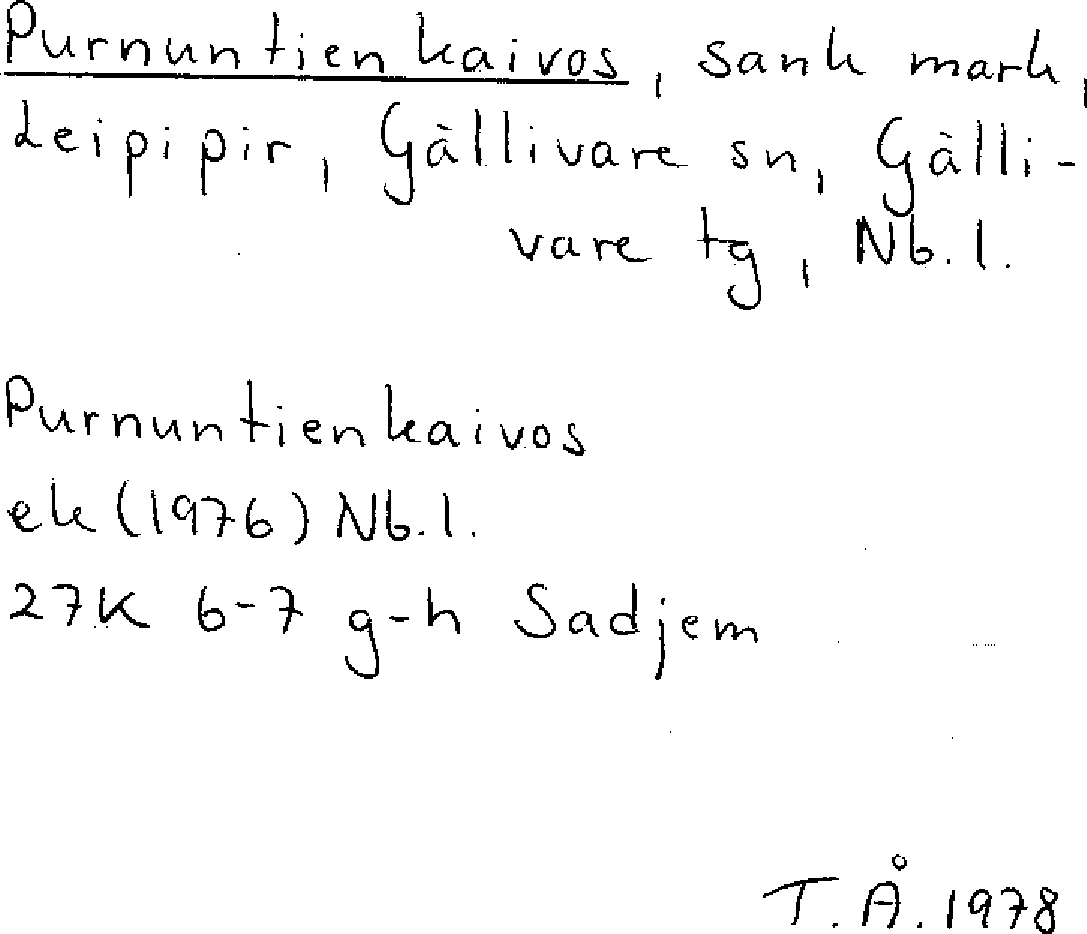 Purnuntienkaivos, sank mark,
Leipipir, Gällivare sn, Gälli-
vare tg, Nb.l.
Purnuntienkaivos
ek (1976) Nb.l.
27K 6-7 g-h Sadjem
T.Å. 1978